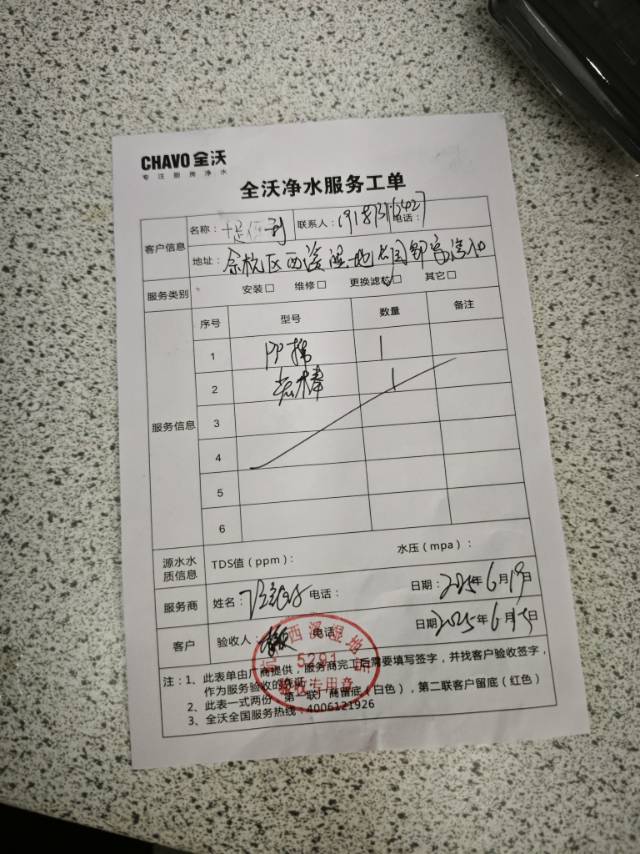 CHAVO 全沃
专注厨房净水
全沃净水服务工单
客户信息
名称： 联系人： 电话：
地址：余杭区西溪湿地公园
服务类别 安装□ 维修□ 更换滤芯□ 其它□
服务信息
序号 型号 数量 备注
1 PP棉 1
2 炭棒 1
3
4
5
6
源水水质信息 TDS值（ppm）： 水压（mpa）：
服务商 姓名： 电话： 日期：2025年6月19日
客户 验收人： 电话 日期：2025年6月19日
西溪湿地
5291
验收专用章
注：1、此表单由厂商提供，服务商完工后需要填写签字，并找客户验收签字，
作为服务验收的凭证
2、此表一式两份 第一联厂商留底（白色），第二联客户留底（红色）
3、全沃全国服务热线：4006121926